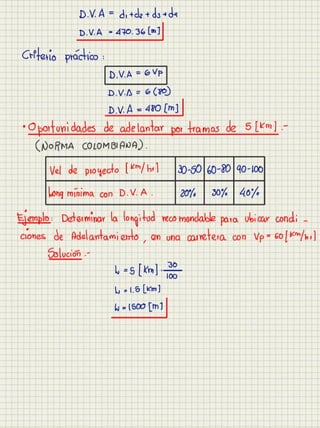 D.V.A = d₁+d₂+d₃+d₄
D.V.A = 470.36 [m]
Criterio práctico:
D.V.A = 6 Vp
D.V.A = 6 (80)
D.V.A = 480 [m]
• Oportunidades de adelantar por tramos de 5 [km].-
(NORMA COLOMBIANA).
Vel de proyecto [km/hr] 30-50 60-80 90-100
Long minima con D.V.A. 20% 30% 40%
Ejemplo: Determinar la longitud recomendable para ubicar condi-
ciones de Adelantamiento, en una carretera con Vp = 60 [km/hr]
Solución.-
L = 5 [km] · 30/100
L = 1.5 [km]
L = 1500 [m]